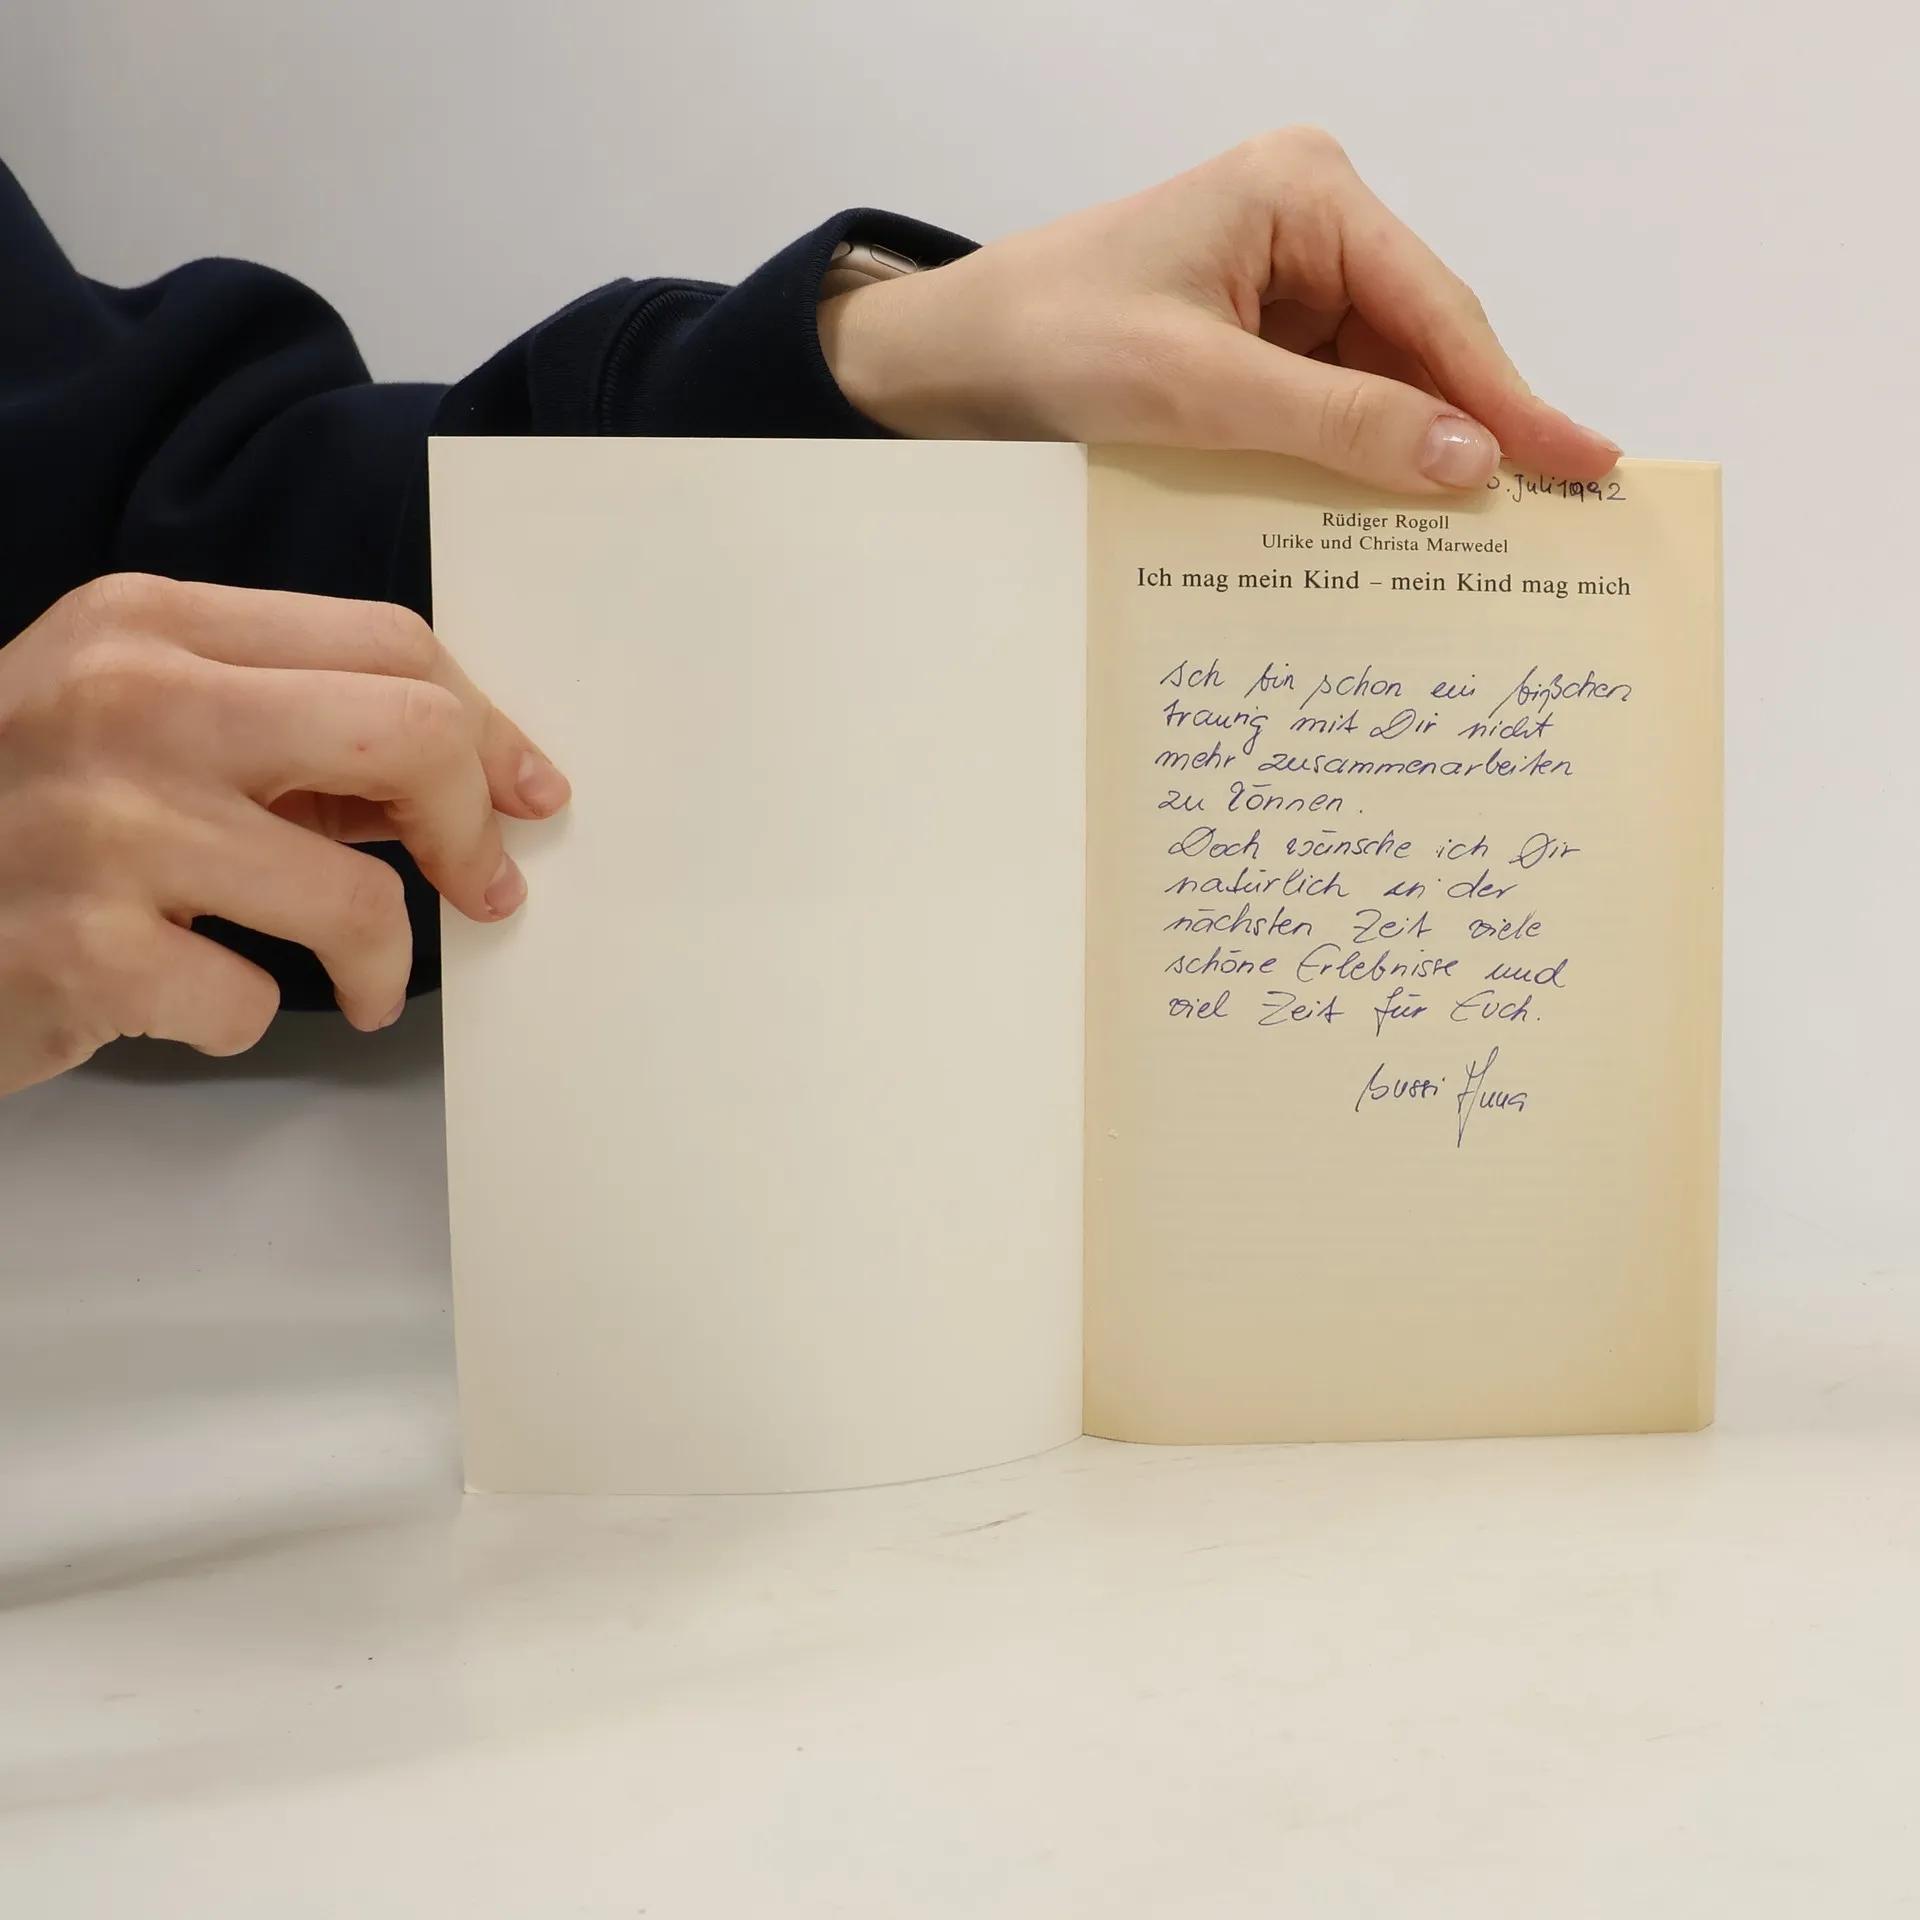 . Juli 1992
Rüdiger Rogoll
Ulrike und Christa Marwedel
Ich mag mein Kind – mein Kind mag mich
Ich bin schon ein bißchen
traurig mit Dir nicht
mehr zusammenarbeiten
zu können.
Doch wünsche ich Dir
natürlich in der
nächsten Zeit viele
schöne Erlebnisse und
viel Zeit für Euch.
Bussi